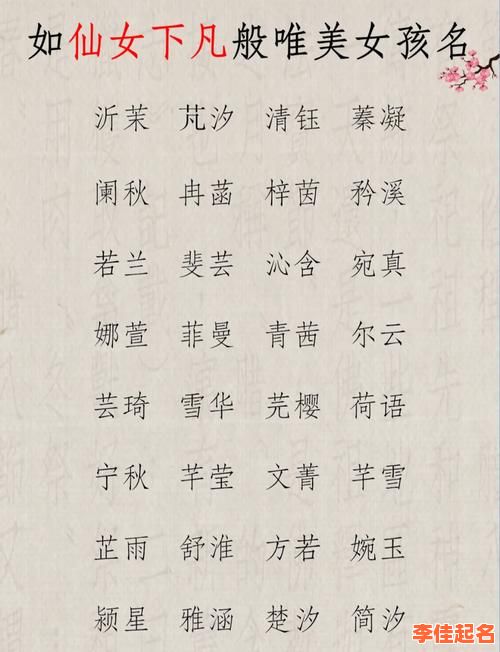 如仙女下凡般唯美女孩名
沂茉 芃汐 清钰 蓁凝
阑秋 冉菡 梓茵 矜溪
若兰 斐芸 沁含 宛真
娜萱 菲曼 青茜 尔云
芸琦 雪华 芫樱 荷语
宁秋 芊莹 文菁 芊雪
芷雨 舒淮 方若 婉玉
颍星 雅涵 楚汐 简汐
李佳起名